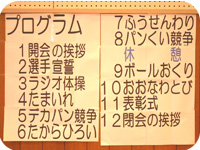 プログラム
1開会の挨拶
2選手宣誓
3ラジオ体操
4たまいれ
5デカパン競争
6たからひろい
7ふうせんわり
8パンくい競争
休 憩
9ボールおくり
10おおなわとび
11表彰式
12閉会の挨拶